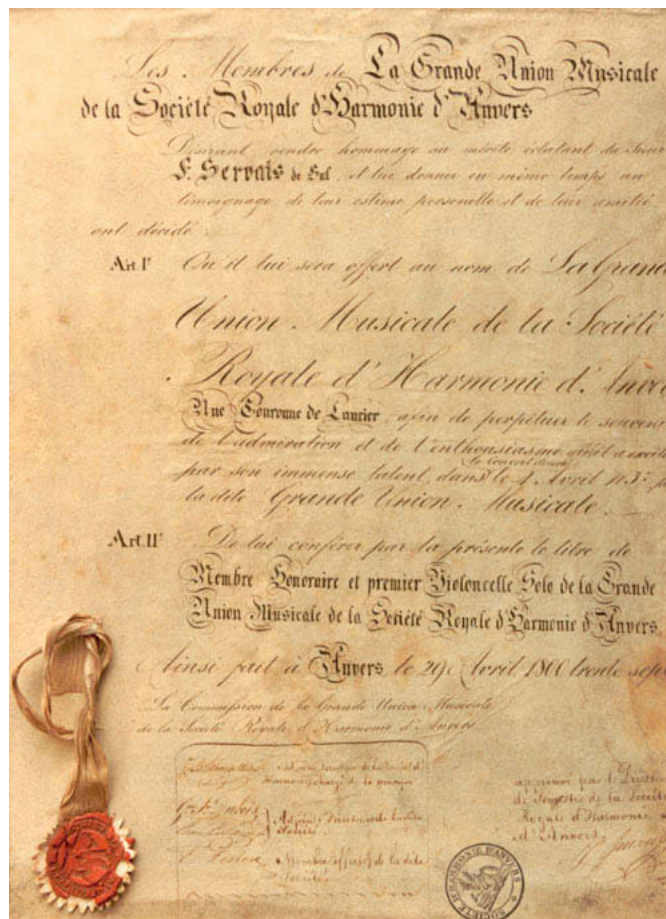 Les Membres de La Grande Union Musicale
de la Société Royale d'Harmonie d'Anvers
Désirant rendre hommage au mérite éclatant du Sieur
F. Servais de Hal, et lui donner en même temps un
témoignage de leur estime personelle et de leur amitié
ont décidé
Art Ir Qu'il lui sera offert au nom de La Grand
Union Musicale de la Société
Royale d'Harmonie d'Anve
Une Couronne de Laurier, afin de perpétuer le souveni
de l'admiration et de l'enthousiasme qu'il a excité
le concert donné
par son immense talent, dans le 4 Avril
la dite Grande Union Musicale.
Art IIr De lui conférer par la présente le titre de
Membre Honoraire et premier Violoncelle Solo de la Grande
Union Musicale de la Société Royale d'Harmonie d'Anvers
Ainsi fait à Anvers le 29 Avril 1800 trente sept
La Commission de la Grande Union Musicale
de la Société Royale d'Harmonie d'Anvers
Harmonie chargé de la musique
Société
Membre effectif de la dite
Société
approuvé par le
de Semestre de la Société
Royale d'Harmonie
d'Anvers,